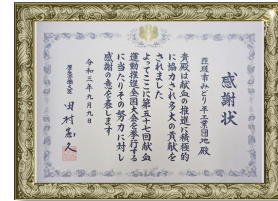 感謝状
匝瑳市みどり平工業団地殿
貴殿は献血の推進に積極的
に協力され多大の貢献を
されました
よってここに第五十七回献血
運動推進全国大会を挙行する
に当たりその努力に対し
感謝の意を表します
令和三年九月九日
厚生労働大臣 田村憲久